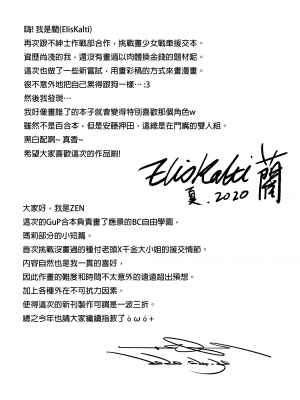 嗨! 我是蘭(ElisKalti)
再次跟不紳士作戰部合作，挑戰畫少女戰車援交本。
資歷尚淺的我，還沒有畫過以肉體換金錢的題材呢。
這次也做了一些新嘗試，用畫彩稿的方式來畫漫畫。
很不意外地把自己累得跟狗一樣... :3
然後我發現…
我好像畫誰了的本子就會變得特別喜歡那個角色w
雖然不是百合本，但是安藤押田，這總是在鬥嘴的雙人組。
黑白配啊~ 真香~
希望大家喜歡這次的作品喲!
ElisKalti 蘭
夏. 2020
大家好，我是ZEN
這次的GuP合本負責畫了應景的BC自由學園，
瑪莉部分的小短篇。
首次挑戰沒畫過的種付老頭X千金大小姐的援交情節。
內容自然也是我一貫的喜好，
因此作畫的難度和時間不太意外的遠遠超出預想。
加上各種外在不可抗力因素。
使得這次的新刊製作可謂是一波三折。
總之今年也請大家繼續指教了ò ω ó+